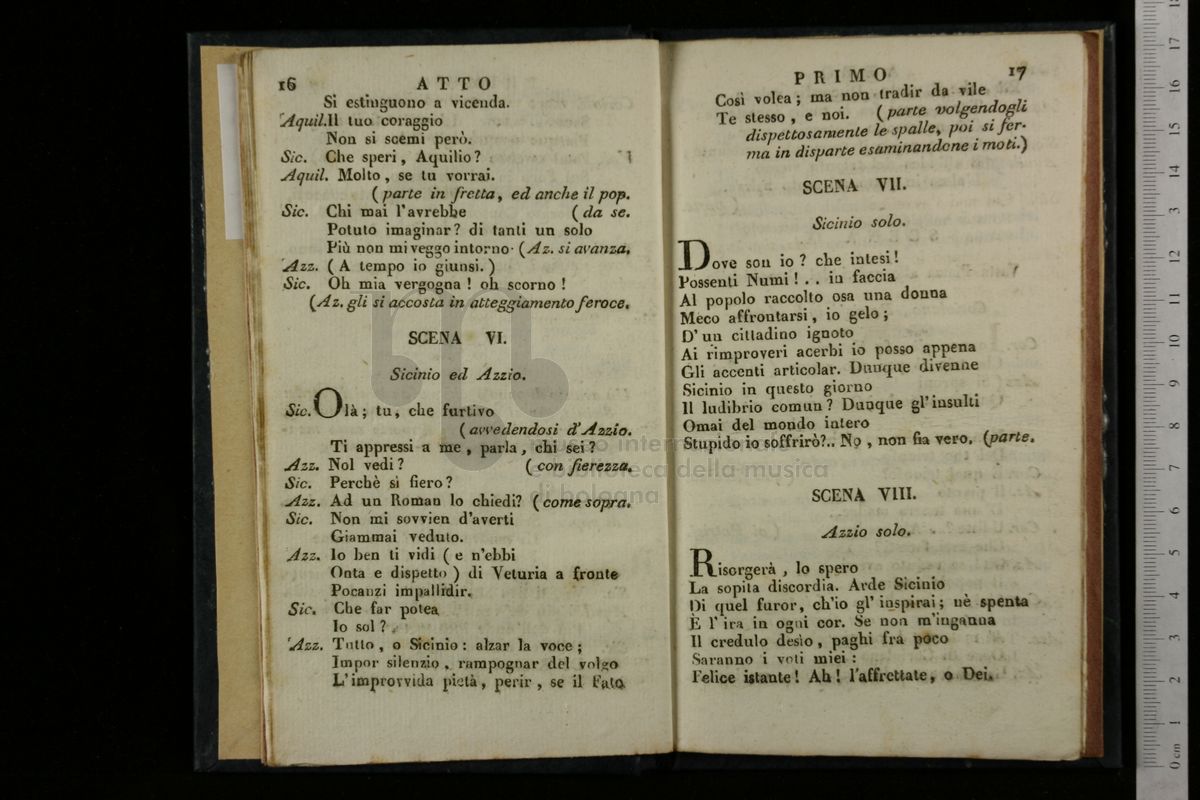 16 ATTO
Si estinguono a vicenda.
Aquil. Il tuo coraggio
Non si scemi però.
Sic. Che speri, Aquilio?
Aquil. Molto, se tu vorrai.
(parte in fretta, ed anche il pop.
Sic. Chi mai l'avrebbe (da se.
Potuto imaginar? di tanti un solo
Più non mi veggo intorno. (Az. si avanza.
Azz. (A tempo io giunsi.)
Sic. Oh mia vergogna! oh scorno!
(Az. gli si accosta in atteggiamento feroce.
SCENA VI.
Sicinio ed Azzio.
Sic. Olà; tu, che furtivo
(avvedendosi d'Azzio.
Ti appressi a me, parla, chi sei?
Azz. Nol vedi? (con fierezza.
Sic. Perchè sì fiero?
Azz. Ad un Roman lo chiedi? (come sopra.
Sic. Non mi sovvien d'averti
Giammai veduto.
Azz. Io ben ti vidi (e n'ebbi
Onta e dispetto) di Veturia a fronte
Pocanzi impallidir.
Sic. Che far potea
Io sol?
Azz. Tutto, o Sicinio: alzar la voce;
Impor silenzio, rampognar del volgo
L'improvvida pietà, perir, se il Fato
PRIMO 17
Così volea; ma non tradir da vile
Te stesso, e noi. (parte volgendogli
dispettosamente le spalle, poi si fer-
ma in disparte esaminandone i moti.)
SCENA VII.
Sicinio solo.
Dove son io? che intesi!
Possenti Numi! .. in faccia
Al popolo raccolto osa una donna
Meco affrontarsi, io gelo;
D'un cittadino ignoto
Ai rimproveri acerbi io posso appena
Gli accenti articolar. Dunque divenne
Sicinio in questo giorno
Il ludibrio comun? Dunque gl'insulti
Omai del mondo intero
Stupido io soffrirò?.. No, non fia vero. (parte.
SCENA VIII.
Azzio solo.
Risorgerà, lo spero
La sopita discordia. Arde Sicinio
Di quel furor, ch'io gl'inspirai; nè spenta
È l'ira in ogni cor. Se non m'inganna
Il credulo desìo, paghi fra poco
Saranno i voti miei:
Felice istante! Ah! l'affrettate, o Dei.
museo internazionale
e biblioteca della musica
di bologna
0 cm 1 2 3 4 5 6 7 8 9 10 11 12 13 14 15 16 17 18